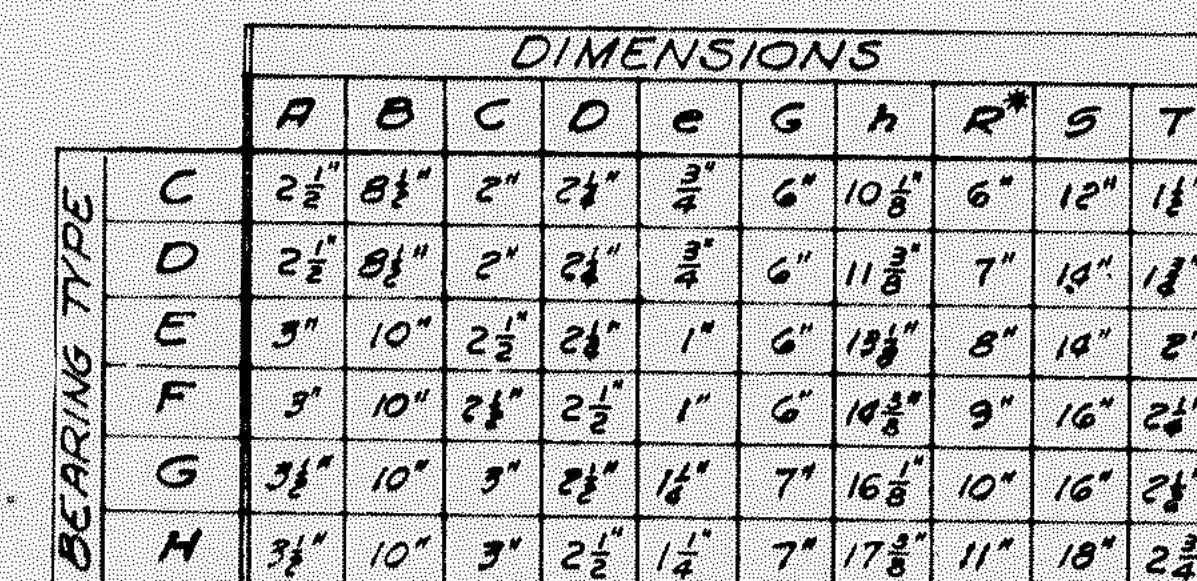 DIMENSIONS
A B C D e G h R* S T
BEARING TYPE
C 2 1/2" 8 1/2" 2" 2 1/4" 3/4" 6" 10 1/8" 6" 12" 1 1/2"
D 2 1/2" 8 1/2" 2" 2 1/4" 3/4" 6" 11 3/8" 7" 14" 1 3/4"
E 3" 10" 2 1/2" 2 1/4" 1" 6" 13 1/8" 8" 14" 2"
F 3" 10" 2 1/2" 2 1/2" 1" 6" 14 3/8" 9" 16" 2 1/4"
G 3 1/2" 10" 3" 2 1/2" 1 1/4" 7" 16 1/8" 10" 16" 2 1/2"
H 3 1/2" 10" 3" 2 1/2" 1 1/4" 7" 17 3/8" 11" 18" 2 3/4